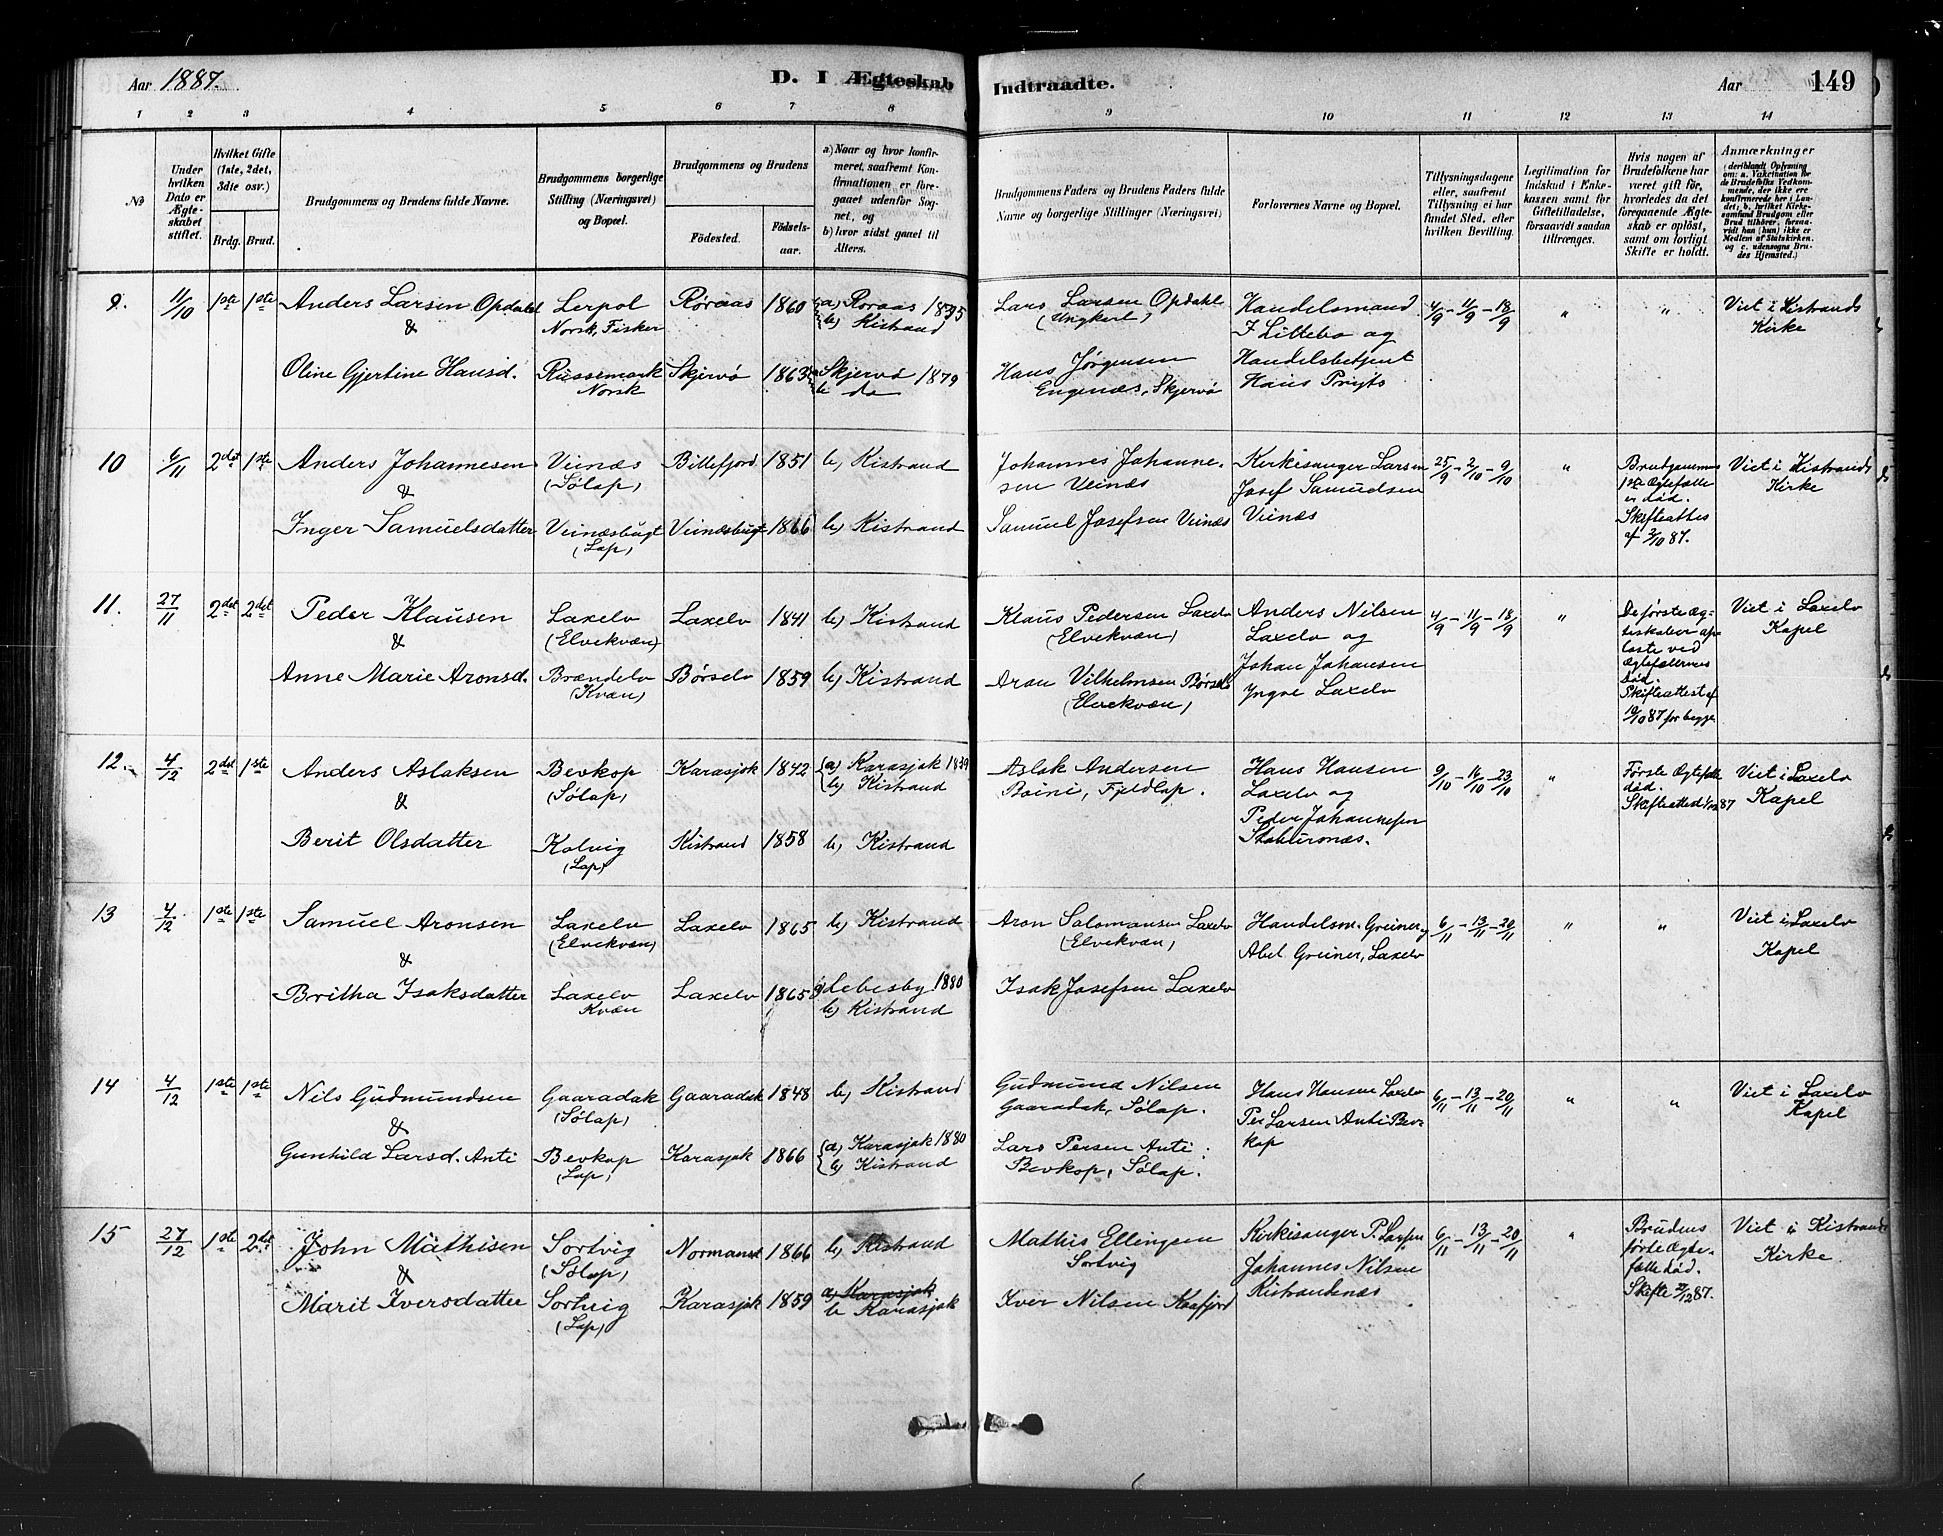 Aar 1887.
D. I Ægteskab
Indtraadte.
Aar
149
1 2 3 4 5 6 7 8 9 10 11 12 13 14
No
Under hvilken Dato er Ægteskabet stiftet.
Hvilket Gifte (1ste, 2det, 3die osv.)
Brdg. Brud.
Brudgommens og Brudens fulde Navne.
Brudgommens borgerlige Stilling (Næringsvei) og Bopæl.
Brudgommens og Brudens
Fødested.
Fødselsaar.
a) Naar og hvor konfirmeret, saafremt Konfirmationen er foregaaet udenfor Sognet, og
b) hvor sidst gaaet til Alters.
Brudgommens Faders og Brudens Faders fulde Navne og borgerlige Stillinger (Næringsvei)
Forlovernes Navne og Bopæl.
Tillysningsdagene eller, saafremt Tillysning ei har fundet Sted, efter hvilken Bevilling.
Legitimation for Indskud i Enkekassen samt for Giftetilladelse, forsaavidt saadan tiltrænges.
Hvis nogen af Brudefolkene har været gift før, hvorledes da det foregaaende Ægteskab er opløst, samt om lovligt Skifte er holdt.
Anmærkninger (deriblandt Oplysning om: a. Vakcination for de Brudefolks Vedkommende, der ikke ere konfirmerede her i Landet, b. hvilket Kirkesamfund Brudgom eller Brud tilhører, forsaavidt han (hun) ikke er Medlem af Statskirken, og c. udensogns Brudes Hjemsted.)
9. 11/10 1ste 1ste Anders Larsen Opdahl Lerpol Røraas 1860 a) Roraas 1875 Lars Larsen Opdahl Handelsmand 4/9 - 11/9 - 18/9 " " Viet i Kistrands
& Norsk, Fisker b) Kistrand (Ungkarl) J Littebo og Kirke
Oline Gjertine Hansd. Russemark Skjervø 1863 a Skjervø 1879 Hans Jørgensen Handelsbetjent
Norsk b do Engenæs, Skjervø Hans Prytz
10 6/11 2det 1ste Anders Johannesen Veinæs Billefjord 1851 b) Kistrand Johannes Johanne- Kirkesanger Larsen 25/9 - 2/10 - 9/10 " Brudgommens Viet i Kistrands
& (Sølap) sen Veinæs Josef Samuelsen 1ste Ægtefælle Kirke
Inger Samuelsdatter Veinæsbugt Veinæsbugt 1866 b) Kistrand Samuel Josefsen Veinæs Veinæs er død.
(Lap) Skifteattest
87.
11. 27/11 2det 2det Peder Klausen Laxelv Laxelv 1841 b) Kistrand Klaus Pedersen Laxelv Anders Nilsen 4/9 - 11/9 - 18/9 " De første æg- Viet i Laxelv
& (Elvekvæn) (Elvekvæn) Laxelv og teskaber op- Kapel
Anne Marie Aronsd. Brændelv Børselv 1859 b) Kistrand Aron Vilhelmsen Børselv Johan Johansen løste ved
(Kvæn) (Elvekvæn) Yngve Laxelv Ægtefællernes
død.
Skifteattest af
19/10 87 for begge
12. 4/12 2det 1ste Anders Aslaksen Bevkop Karasjok 1842 a) Karasjok Aslak Andersen Hans Hansen 9/10 - 16/10 - 23/10 " Første Ægtefælle Viet i Laxelv
& (Sølap) b) Kistrand Boini, Fjeldlap. Laxelv og død. Kapel
Berit Olsdatter Kolvig Kistrand 1858 b) Kistrand Peder Johannesen Skifteattest 87
(Lap) Staburnæs.
13 4/12 1ste 1ste Samuel Aronsen Laxelv Laxelv 1865 b) Kistrand Aron Salomonsen Laxelv Handelsm. Greiner, 6/11 - 13/11 - 20/11 " " Viet i Laxelv
& (Elvekvæn) (Elvekvæn) Abel Greiner, Laxelv Kapel
Britha Isaksdatter Laxelv Laxelv 1865 a) Lebesby 1880 Isak Josefsen Laxelv
Kvæn b) Kistrand
14 4/12 1ste 1ste Nils Gudmundsen Gaaradak Gaaradak 1848 b) Kistrand Gudmund Nilsen Hans Hansen Laxelv 6/11 - 13/11 - 20/11 " " Viet i Laxelv
& (Sølap) Gaaradak, Sølap. Per Larsen Anti Bev- Kapel
Gunhild Larsd. Anti Bevkop Karasjok 1866 a) Karasjok 1880 Lars Persen Anti kop
(Lap) b) Kistrand Bevkop, Sølap.
15 27/12 1ste 2det John Mathisen Sortvig Normanset 1866 b) Kistrand Mathis Ellingsen Kirkesanger P. Larsen 6/11 - 13/11 - 20/11 " Brudens Viet i Kistrands
& (Sølap) Sortvig Johannes Nilsen første Ægte- Kirke
Marit Iversdatter Sortvig Karasjok 1859 a) Karasjok Iver Nilsen Kaafjord Kistrandnæs fælle død.
(Lap) b Karasjok Skifte 87.